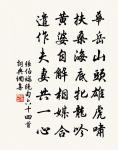 華岳山頭雄虎嘯
扶桑海底牝龍吟
黃婆自解相媒合
遣作夫妻共一心
張伯端絕句六十四首